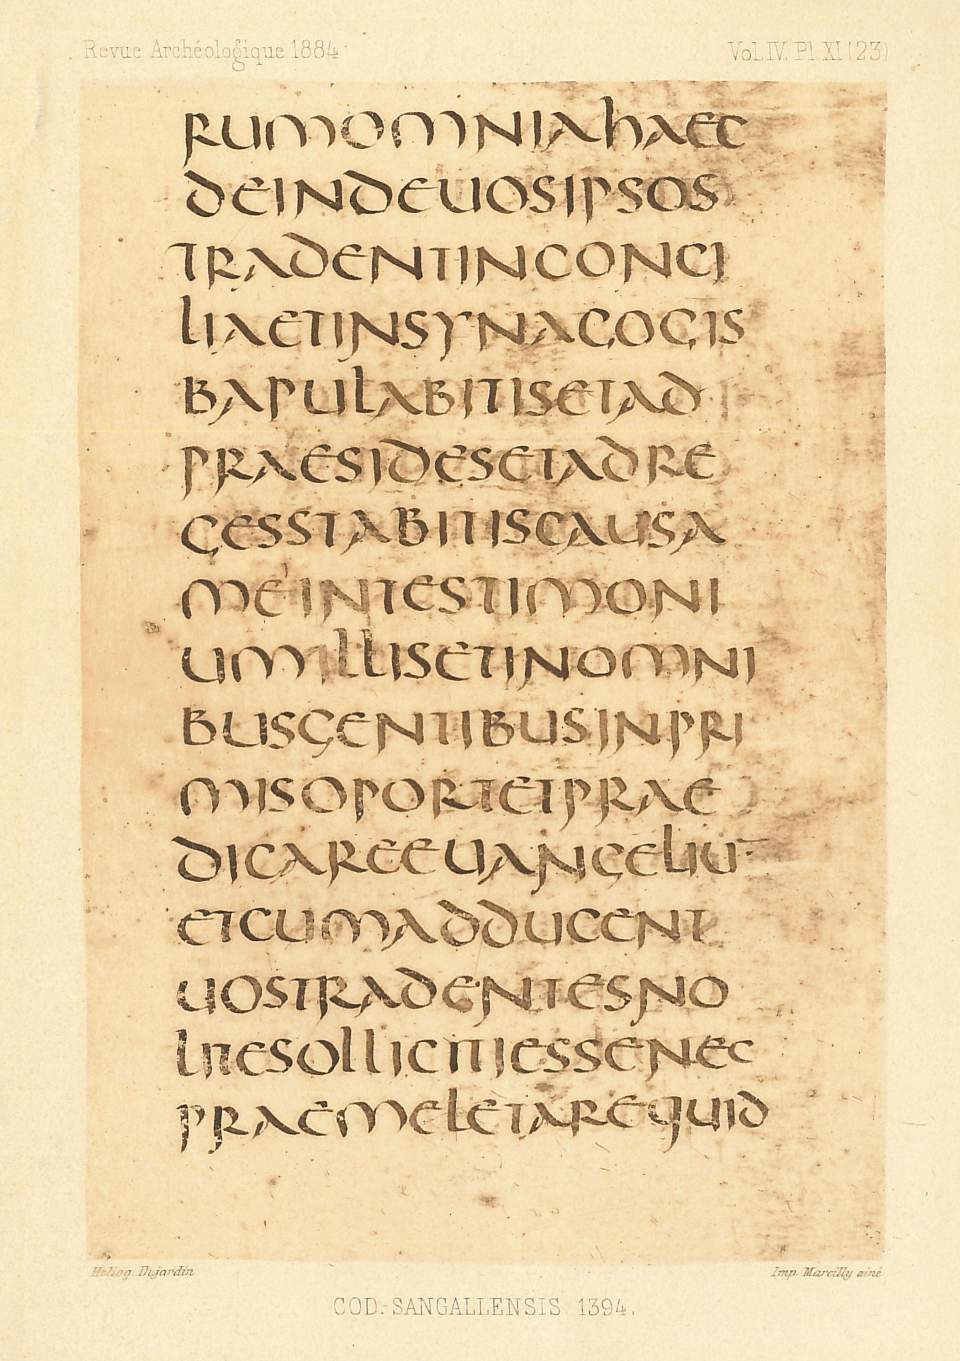 Revue Archéologique 1884
Vol. IV. Pl. XI (23)
RUMOMNIAHAEC
DEINDEUOSIPSOS
TRADENTINCONCI
LIAETINSYNAGOGIS
BAPULABITISETAD
PRAESIDESETADRE
GESSTABITISCAUSA
MEINTESTIMONI
UMILLISETINOMNI
BUSGENTIBUSINPRI
MISOPORTETPRAE
DICAREEUANGELIŪ
ETCUMADDUCENT
UOSTRADENTESNO
LITESOLLICITIESSENEC
PRAEMELETAREQUID
Héliog. Dujardin
Imp. Marcilly aîné
COD. SANGALLENSIS 1394.